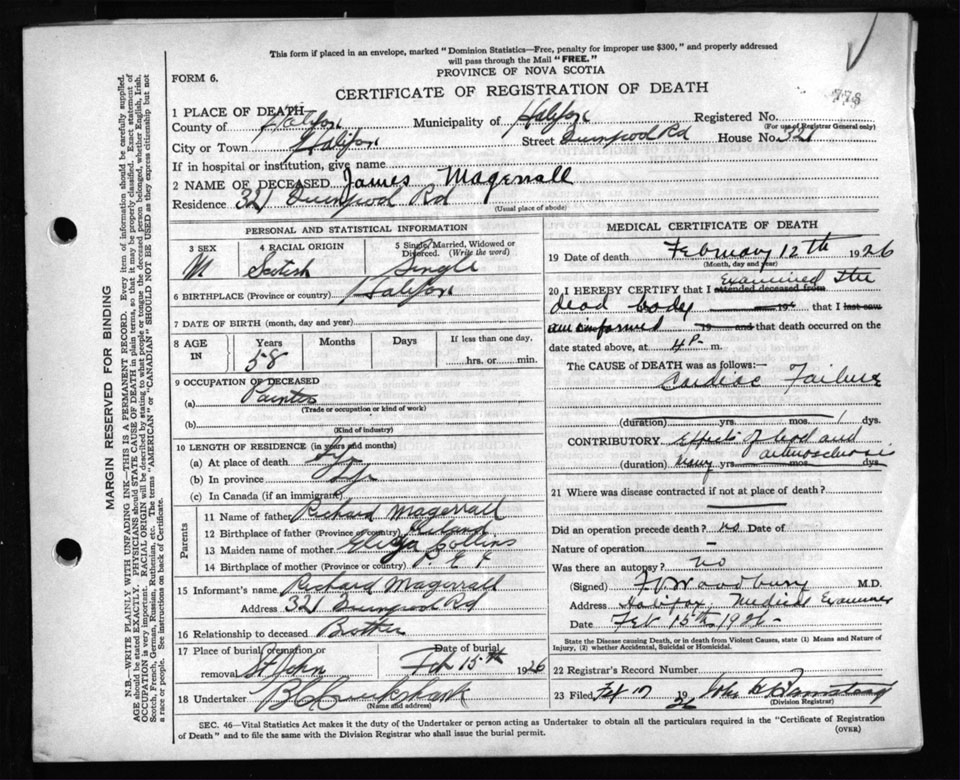 This form if placed in an envelope, marked "Dominion Statistics—Free, penalty for improper use $300," and properly addressed
will pass through the Mail "FREE."
PROVINCE OF NOVA SCOTIA
FORM 6.
CERTIFICATE OF REGISTRATION OF DEATH
778
1 PLACE OF DEATH
County of Halifax Municipality of Halifax Registered No.
(For use of Registrar General only)
City or Town Halifax Street Rd House No. 321
If in hospital or institution, give name
2 NAME OF DECEASED James Magerrall
Residence 321 Rd
(Usual place of abode)
PERSONAL AND STATISTICAL INFORMATION
3 SEX 4 RACIAL ORIGIN 5 Single, Married, Widowed or
Divorced. (Write the word)
M Scotish Single
6 BIRTHPLACE (Province or country) Halifax
7 DATE OF BIRTH (month, day and year)
8 AGE IN Years Months Days If less than one day,
58 hrs. or min.
9 OCCUPATION OF DECEASED
(a) Painter
(Trade or occupation or kind of work)
(b)
(Kind of industry)
10 LENGTH OF RESIDENCE (in years and months)
(a) At place of death
(b) In province
(c) In Canada (if an immigrant)
Parents
11 Name of father Richard Magerrall
12 Birthplace of father (Province or country)
13 Maiden name of mother Eliza Collins
14 Birthplace of mother (Province or country) P.E.I
15 Informant's name Richard Magerrall
Address 321 Rd
16 Relationship to deceased Brother
17 Place of burial, cremation or removal St John Date of burial Feb 15th 1926
18 Undertaker
(Name and address)
MEDICAL CERTIFICATE OF DEATH
19 Date of death February 12th 1926
(Month, day and year)
20 I HEREBY CERTIFY that I attended deceased from Examined the
dead body 19 that I last saw
am informed 19 and that death occurred on the
date stated above, at 4 P. m.
The CAUSE OF DEATH was as follows:—
Cardiac Failure
(duration) yrs. mos. 1 dys.
CONTRIBUTORY Effects of lead and
arteriosclerosis
(duration) many yrs. mos. dys.
21 Where was disease contracted if not at place of death?
Did an operation precede death? no Date of
Nature of operation –
Was there an autopsy? no
(Signed) Woodbury M.D.
Address Halifax, Medical Examiner
Date Feb 15th 1926-
State the Disease causing Death, or in death from Violent Causes, state (1) Means and Nature of
Injury, (2) whether Accidental, Suicidal or Homicidal.
22 Registrar's Record Number
23 Filed Feb 17 1926
(Division Registrar)
SEC. 46—Vital Statistics Act makes it the duty of the Undertaker or person acting as Undertaker to obtain all the particulars required in the "Certificate of Registration
of Death" and to file the same with the Division Registrar who shall issue the burial permit.
(OVER)
MARGIN RESERVED FOR BINDING
N.B.—WRITE PLAINLY WITH UNFADING INK—THIS IS A PERMANENT RECORD. Every item of information should be carefully supplied.
AGE should be stated EXACTLY. PHYSICIANS should STATE CAUSE OF DEATH in plain terms, so that it may be properly classified. Exact statement of
OCCUPATION is very important. RACIAL ORIGIN will be described by stating to what people or tongue the deceased person belonged, whether English, Irish,
Scotch, French, German, Russian, Ruthenian, etc. The terms "AMERICAN" or "CANADIAN" SHOULD NOT BE USED as they express citizenship but not
a race or people. See instructions on back of Certificate.